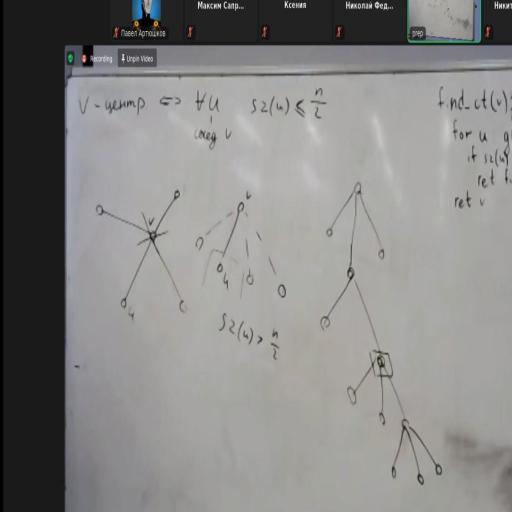 Павел Артюшков
Максим Сапр...
Ксения
Николай Фед...
prep
Никит
Recording
Unpin Video
V - центр ⇔ ∀u sz(u) ≤ n/2
сосед v
find_ct(v):
for u g
if sz(u)
ret f.
ret v
v
v
u
u
sz(u) > n/2